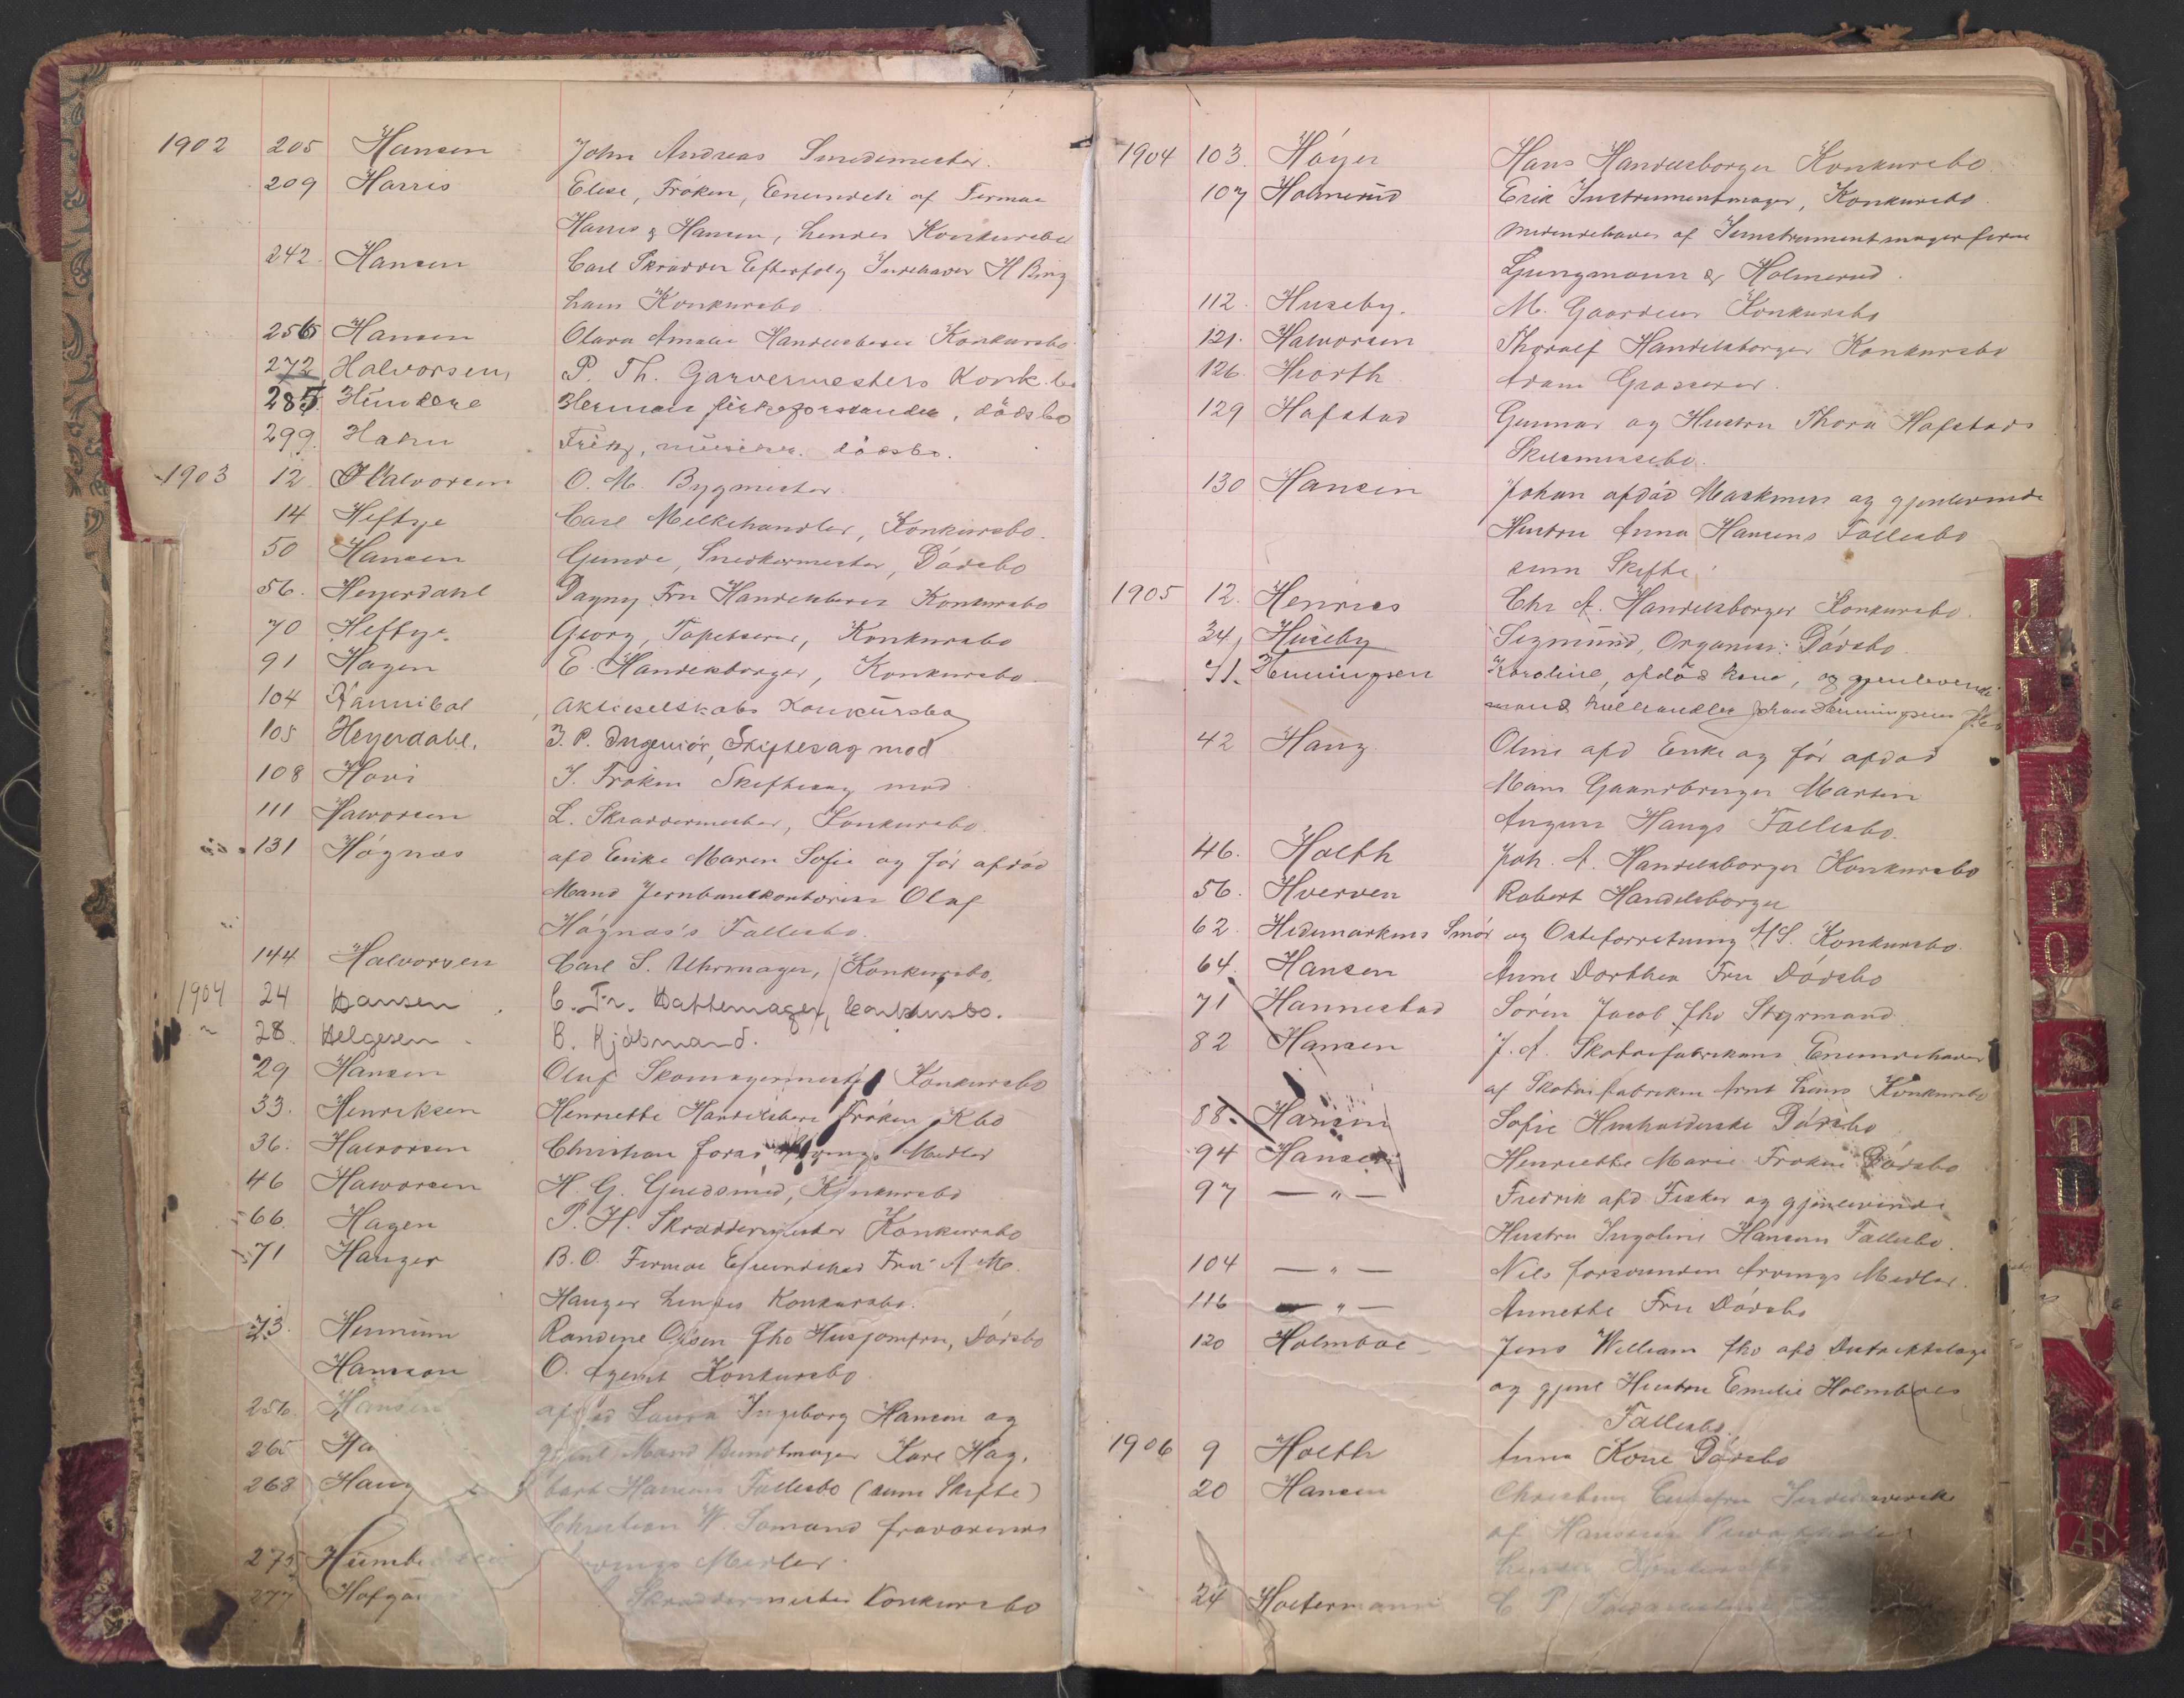 1902 205 Hansen John Andreas Smedemester.
209 Harris Elise, Fröken, Eneindeh af Firmae
Harris & Hansen, hendes Konkursbo
242 Hansen Carl Skrædder Efterfølg Indehaver H Bing
ham Konkursbo
256 Hansen Olava Amalie Handlende Konkursbo
272 Halvorsen, P. Th. Garvermesters Konk.bo
285 Herman dødsbo
299. Hahn Fritz, musiker. dödsbo.
1903 12 Halvorsen O. M. Bygmester
14 Heftye Carl Melkehandler, Konkursbo.
50 Hansen Gunde, Snedkermester, Dödsbo
56. Heyerdahl Dagny Fru Konkursbo
70 Heftye. Georg, Tapetserer, Konkursbo
91 Hagen E. Handelsborger, Konkursbo.
104 Hannibal Aktieselskabs Konkursbo
105 Heyerdahl, J. P. Ingeniör, Skiftesag med
108 Hovi J. Fröken Skiftesag med
111 Halvorsen L. Skræddermester, Konkursbo.
131 Högnæs afd Enke Maren Sofie og för afdöd
Mand Jernbanekontorist Olaf
Högnæs's Fællesbo.
144 Halvorsen Carl S. Uhrmager, Konkursbo.
1904 24 Hansen C. Fr. Hattemager, Conkursbo.
28. Helgesen C. Kjöbmand.
29 Hansen Oluf Skomagermester Konkursbo
33. Henriksen Henriette Fröken Kbo
36. Halvorsen Christian Midler
46 Halvorsen H. G. Guldsmed, Konkursbo
66. Hagen P. H. Skræddermester Konkursbo
71 Hauger B. O. Firmae Fru A. M.
Hauger hendes Konkursbo.
73. Hennum Randine Olsen fho Husjomfru, Dödsbo
Hansson O. Agent Konkursbo
256. Hansen afdöd Laura Ingeborg Hansen og
265 Ha gjenl Mand Buntmager Karl Hag.
268 Haug bart Hansens Fællesbo (sum Skifte)
Christian W. Sömand fraværende
275 Arvings Midler.
277 Skræddermester Konkursbo
1904 103. Höyer Hans Handelsborger Konkursbo.
107 Holmerud Erik Instrumentmager, Konkursbo.
Medindehaver af Instrumentmagerfirma
Ljungmann & Holmerud.
112. Huseby. M. Konkursbo
121. Halvorsen Thoralf Handelsborger Konkursbo
126. Hiorth Adam Grosserer.
129 Hafstad Gunnar og Hustru Thora Hafstads
Skilsmissebo.
130 Hansen Johan afdöd Maskinist og gjenlevende
Hustru Anna Hansens Fællesbo
sum Skifte
1905 12. Henrics Chr A. Handelsborger Konkursbo.
34, Huseby Sigmund, Organist. Dödsbo.
Henningsen Karoline, afdöd kone, og gjenlevende
mand Johan Henningsens
42 Haug Oline afd Enke og för afdöd
Mans Gaardbruger Martin
August Haugs Fællesbo.
46. Holth Joh. A. Handelsborger Konkursbo
56. Hverven Robert Handelsborger
62. Hedemarkens Smör og Osteforretning A/S. Konkursbo.
64. Hansen Anne Dorthea Fru Dödsbo
71 Hannestad Sören Jacob fhv Styrmand
82 Hansen J. A. Skotøifabrikant Eneindehaver
af Skotøifabriken Konkursbo
88. Hansen Sofie Husholderske Dödsbo
94 Hansen Henriette Marie Fröken Dödsbo
97 — " — Fredrik afd Fisker og gjenlevende
Hustru Ingoline Hansens Fællesbo.
104 — " — Nils forsvunden Arvings Midler.
116 — " — Annette Fru Dödsbo
120 Holmboe Jens William fhv afd Distriktslæge
og gjenl Hustru Emilie Holmboes
Fællesbo.
1906 9 Holth Anna Kone Dödsbo
20 Hansen Christine
af Hansens
hendes Konkursbo
24 Holtermann C P
J
K
L
M
N
O
P
Q
R
S
T
U
V
Æ